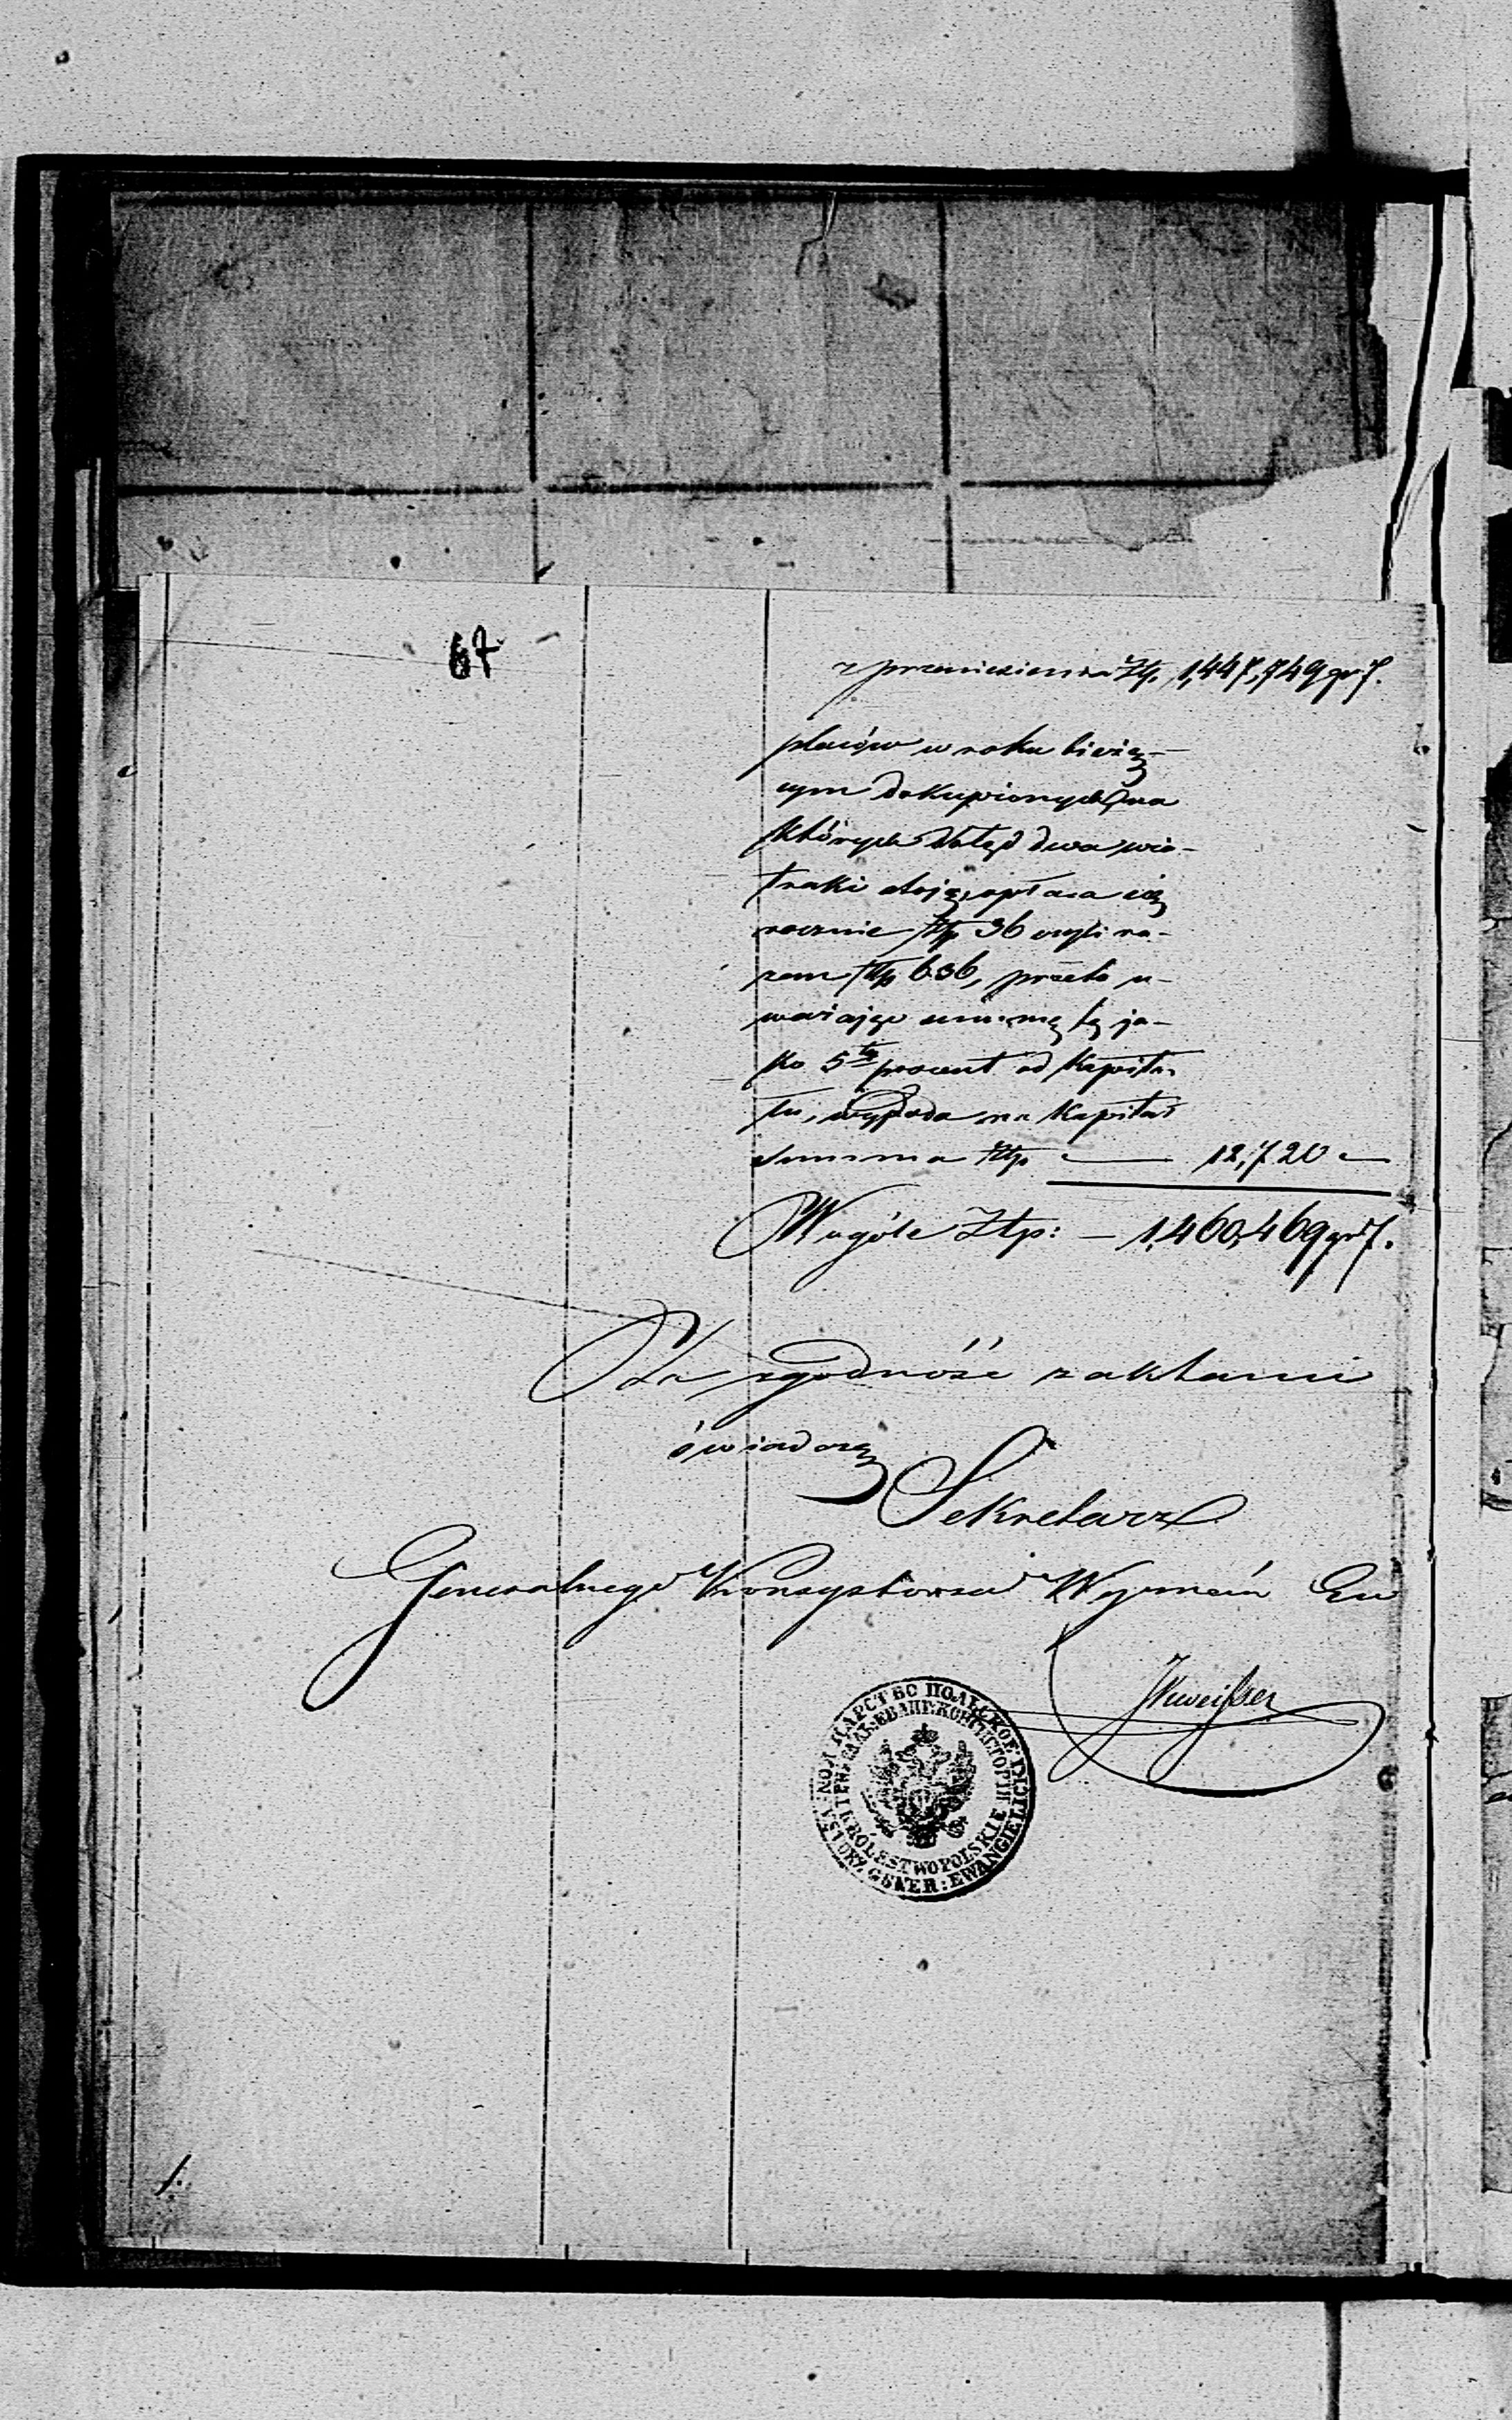 67
z przeniesienia Złp. 1,447,749 gr 7.
placów w roku bieżą-
cym dokupionych, na
których dotąd dwa wia-
traki stoją, opłaca się
rocznie złp 36 czyli ra-
zem złp 636, przeto u-
ważając summę tę ja-
ko 5ty procent od kapita-
łu, wypada na kapitał
summa złp. — 12,720 —
Wogóle Złp: — 1,460,469 gr 7.
Za zgodność z aktami
świadczę
Sekretarz
Generalnego Konsystorza Wyznań Ew
КОЙ ЦАРСТВО ПОЛЬСКОЕ
ГЕНЕРАЛЬ: ЕВАНГ: КОНСИСТОРІИ
KRÓLESTWO POLSKIE
KONSYSTORZ GENER: EWANGIELICKI
1.